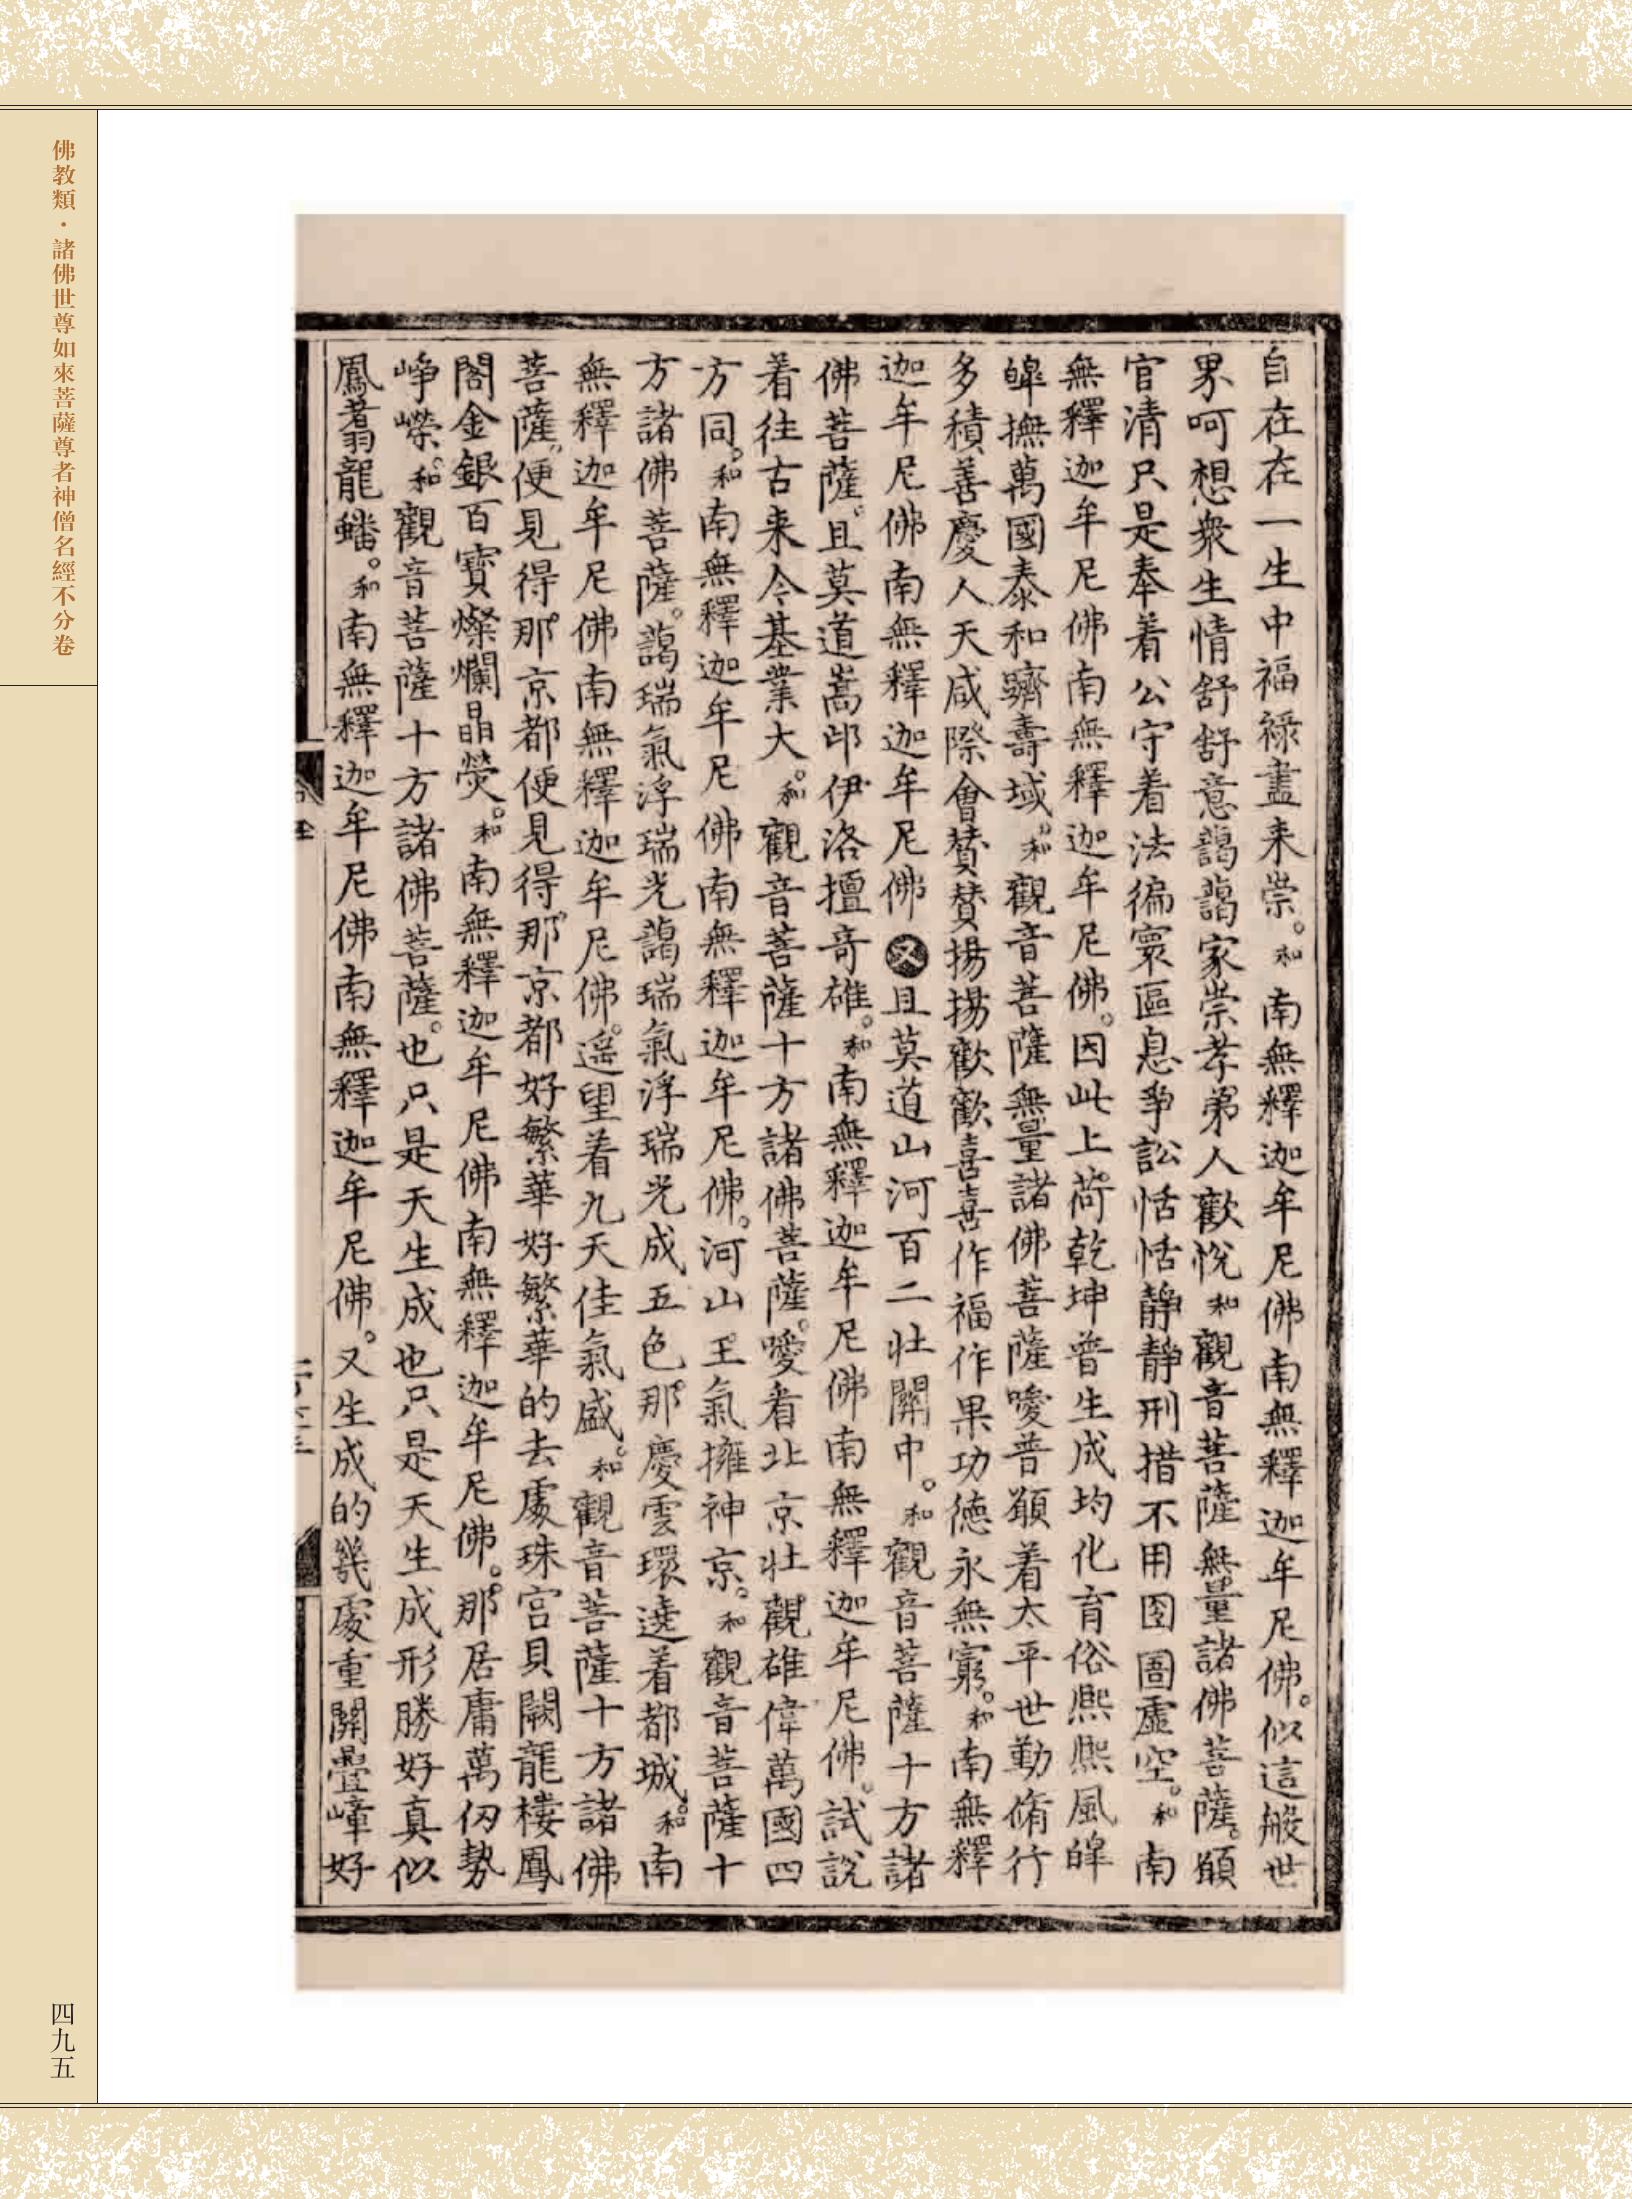 自在在一生中福祿盡来崇。和南無釋迦牟尼佛南無釋迦牟尼佛。似這般世
界呵想衆生情舒舒意藹藹家崇孝弟人歡悅和觀音菩薩無量諸佛菩薩。願
官清只是奉着公守着法徧寰區息爭訟恬恬靜靜刑措不用囹圄虛空。和南
無釋迦牟尼佛南無釋迦牟尼佛。因此上荷乾坤普生成均化育俗熙熙風皥
皥撫萬國泰和躋壽域。和觀音菩薩無量諸佛菩薩噯普願着太平世勤脩行
多積善慶人天咸際會贊贊揚揚歡歡喜喜作福作果功德永無窮。和南無釋
迦牟尼佛南無釋迦牟尼佛 又且莫道山河百二壯關中。和觀音菩薩十方諸
佛菩薩。且莫道嵩邙伊洛擅奇雄。和南無釋迦牟尼佛南無釋迦牟尼佛。試說
着往古来今基業大。和觀音菩薩十方諸佛菩薩。噯看北京壯觀雄偉萬國四
方同。和南無釋迦牟尼佛南無釋迦牟尼佛。河山王氣擁神京。和觀音菩薩十
方諸佛菩薩。藹瑞氣浮瑞光藹瑞氣浮瑞光成五色那慶雲環遶着都城。和南
無釋迦牟尼佛南無釋迦牟尼佛。遥望着九天佳氣盛。和觀音菩薩十方諸佛
菩薩。便見得那京都便見得那京都好繁華好繁華的去處珠宮貝闕龍樓鳳
閣金銀百寶燦爛晶熒。和南無釋迦牟尼佛南無釋迦牟尼佛。那居庸萬仞勢
崢嶸。和觀音菩薩十方諸佛菩薩。也只是天生成也只是天生成形勝好真似
鳳翥龍蟠。和南無釋迦牟尼佛南無釋迦牟尼佛。又生成的幾處重關疊嶂好
佛教類・諸佛世尊如來菩薩尊者神僧名經不分卷
四九五